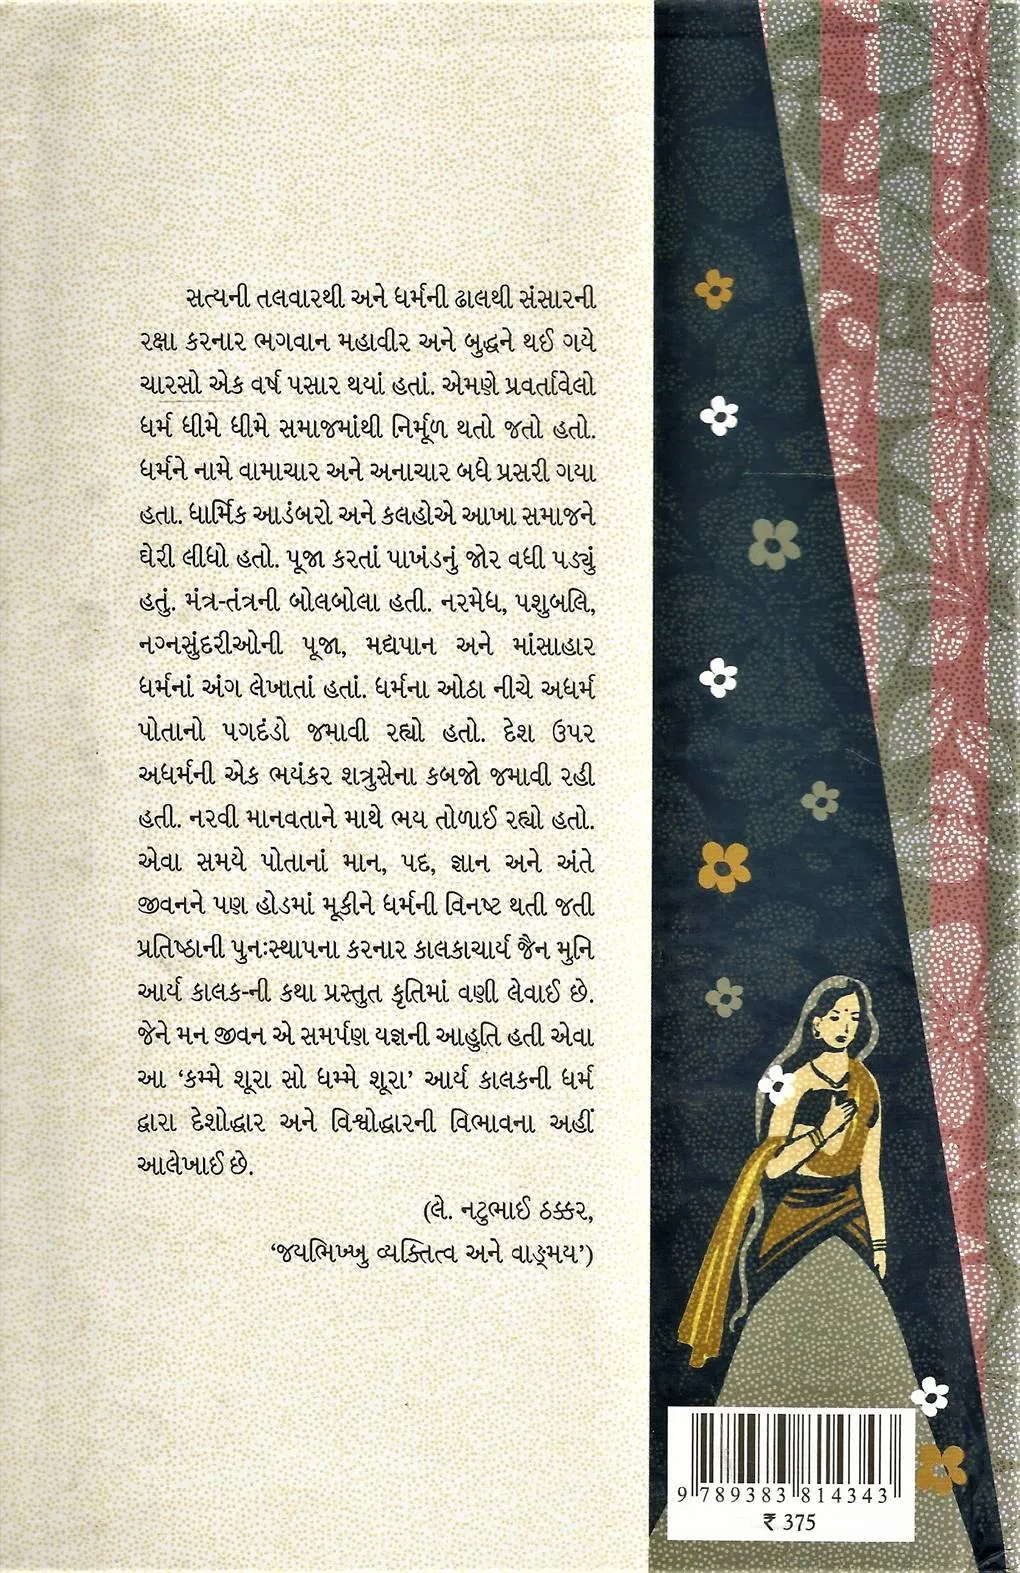 સત્યની તલવારથી અને ધર્મની ઢાલથી સંસારની
રક્ષા કરનાર ભગવાન મહાવીર અને બુદ્ધને થઈ ગયે
ચારસો એક વર્ષ પસાર થયાં હતાં. એમણે પ્રવર્તાવેલો
ધર્મ ધીમે ધીમે સમાજમાંથી નિર્મૂળ થતો જતો હતો.
ધર્મને નામે વામાચાર અને અનાચાર બધે પ્રસરી ગયા
હતા. ધાર્મિક આડંબરો અને કલહોએ આખા સમાજને
ઘેરી લીધો હતો. પૂજા કરતાં પાખંડનું જોર વધી પડ્યું
હતું. મંત્ર-તંત્રની બોલબોલા હતી. નરમેધ, પશુબલિ,
નગ્નસુંદરીઓની પૂજા, મદ્યપાન અને માંસાહાર
ધર્મનાં અંગ લેખાતાં હતાં. ધર્મના ઓઠા નીચે અધર્મ
પોતાનો પગદંડો જમાવી રહ્યો હતો. દેશ ઉપર
અધર્મની એક ભયંકર શત્રુસેના કબજો જમાવી રહી
હતી. નરવી માનવતાને માથે ભય તોળાઈ રહ્યો હતો.
એવા સમયે પોતાનાં માન, પદ, જ્ઞાન અને અંતે
જીવનને પણ હોડમાં મૂકીને ધર્મની વિનષ્ટ થતી જતી
પ્રતિષ્ઠાની પુનઃસ્થાપના કરનાર કાલકાચાર્ય જૈન મુનિ
આર્ય કાલક-ની કથા પ્રસ્તુત કૃતિમાં વણી લેવાઈ છે.
જેને મન જીવન એ સમર્પણ યજ્ઞની આહુતિ હતી એવા
આ ‘કમ્મે શૂરા સો ધમ્મે શૂરા’ આર્ય કાલકની ધર્મ
દ્વારા દેશોદ્ધાર અને વિશ્વોદ્ધારની વિભાવના અહીં
આલેખાઈ છે.
(લે. નટુભાઈ ઠક્કર,
‘જયભિખ્ખુ વ્યક્તિત્વ અને વાઙ્મય’)
9 789383 814343
₹ 375